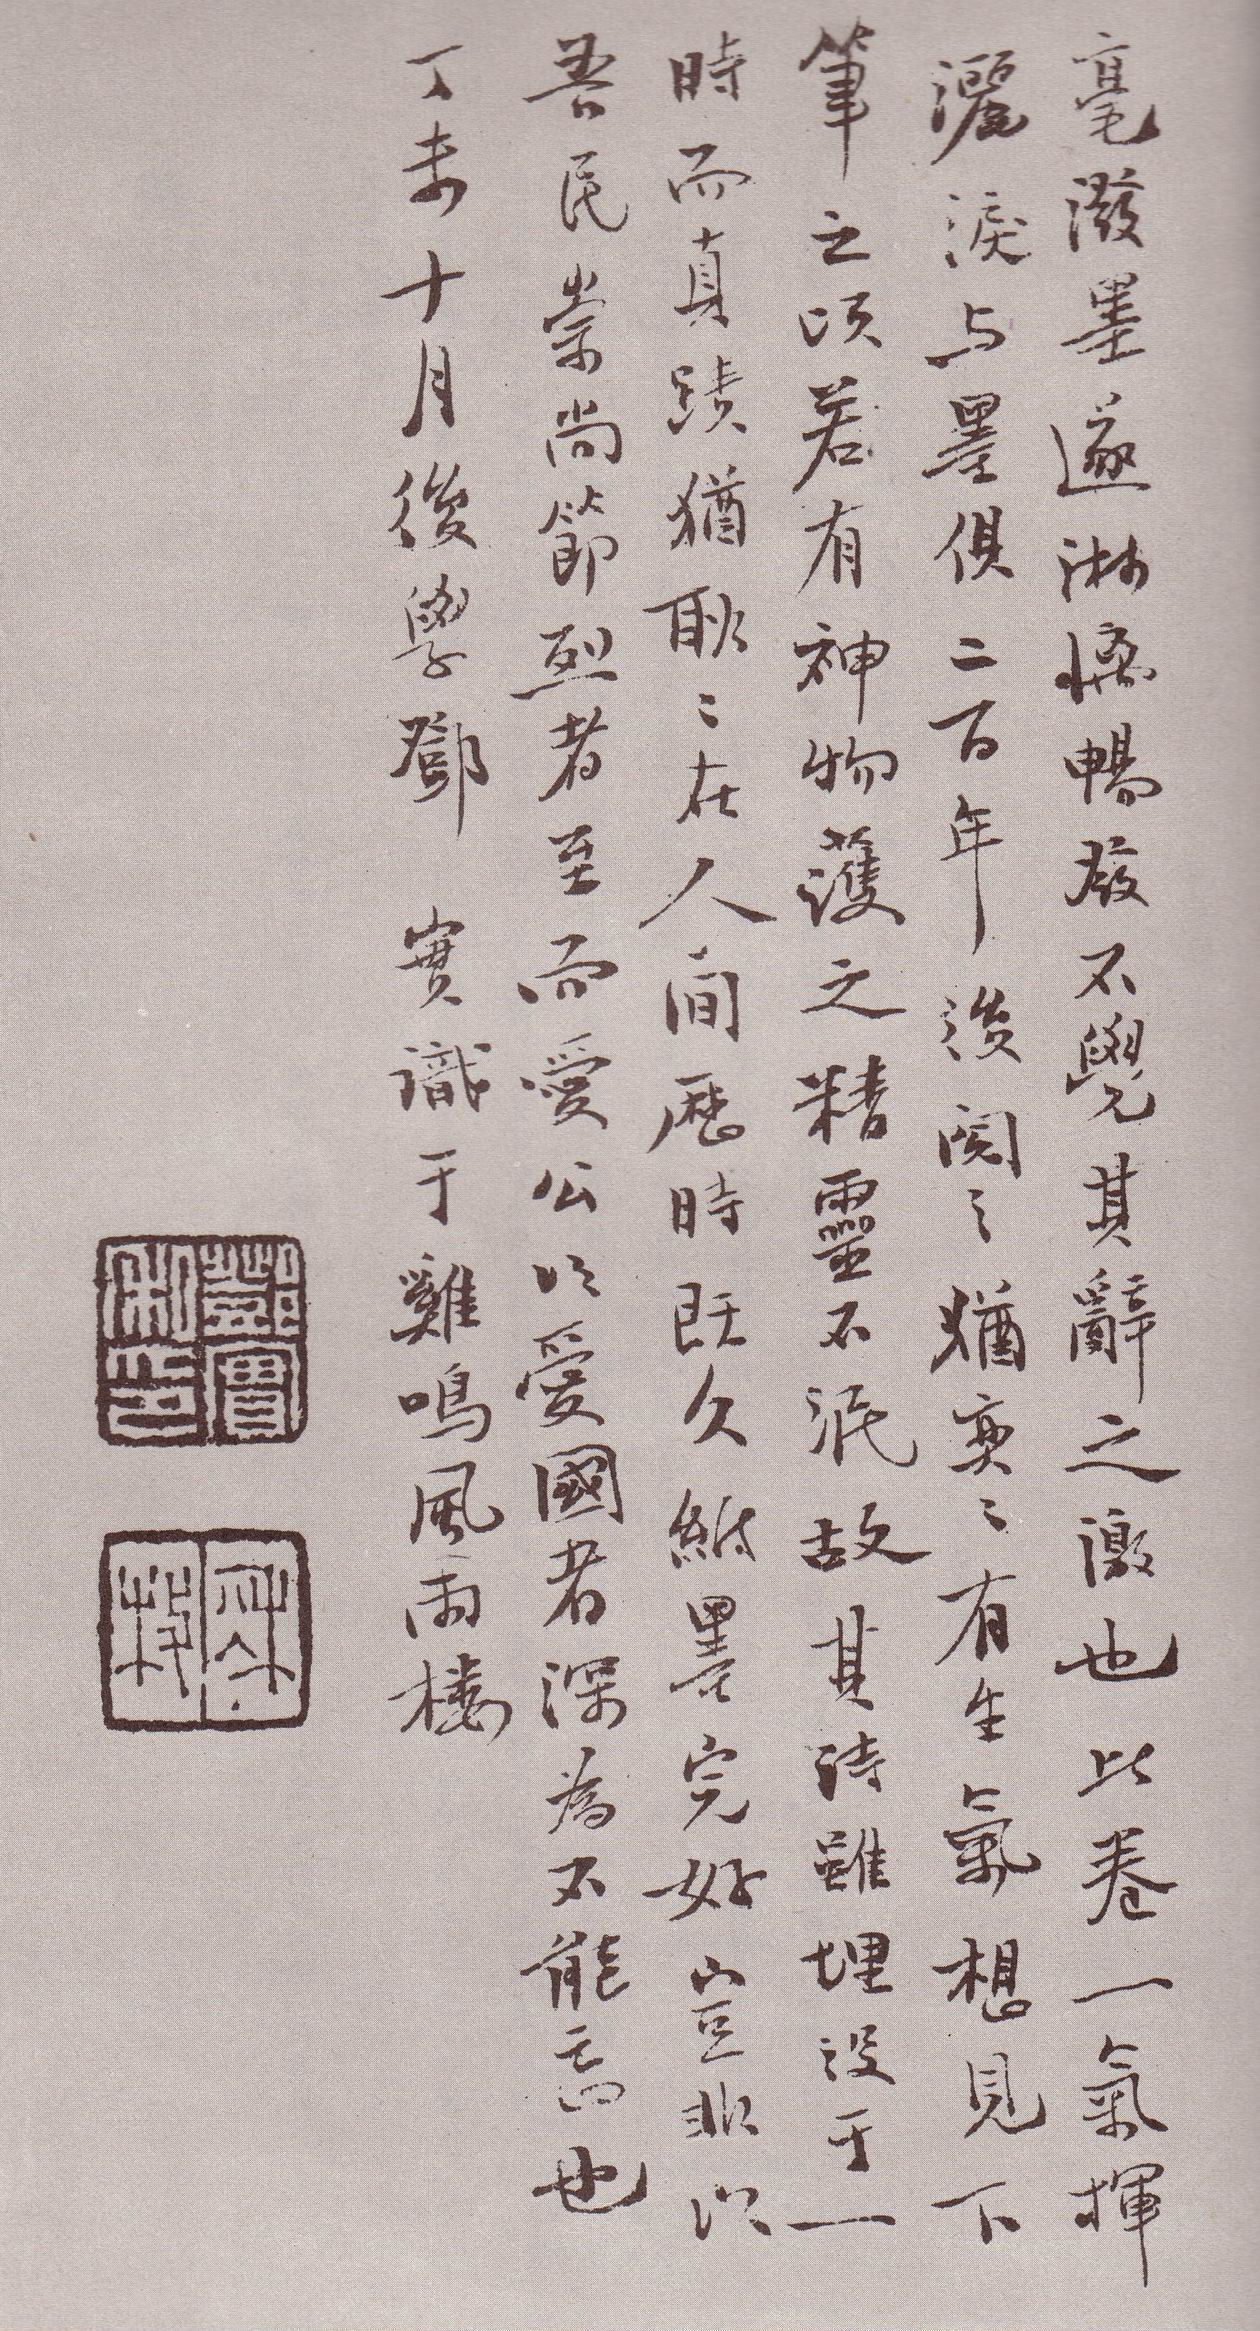 毫潑墨遂淋漓暢發不覺其辭之激也此卷一氣揮
灑淚与墨俱二百年後閱之猶奕〻有生氣想見下
筆之頃若有神物護之精靈不泯故其詩雖埋沒于一
時而真蹟猶耿〻在人間歷時既久紙墨完好豈非以
吾民崇尚節烈者至而愛公以愛國者深為不能忘也
丁未十月後學鄧實識于雞鳴風雨樓
鄧實私印
秋枚